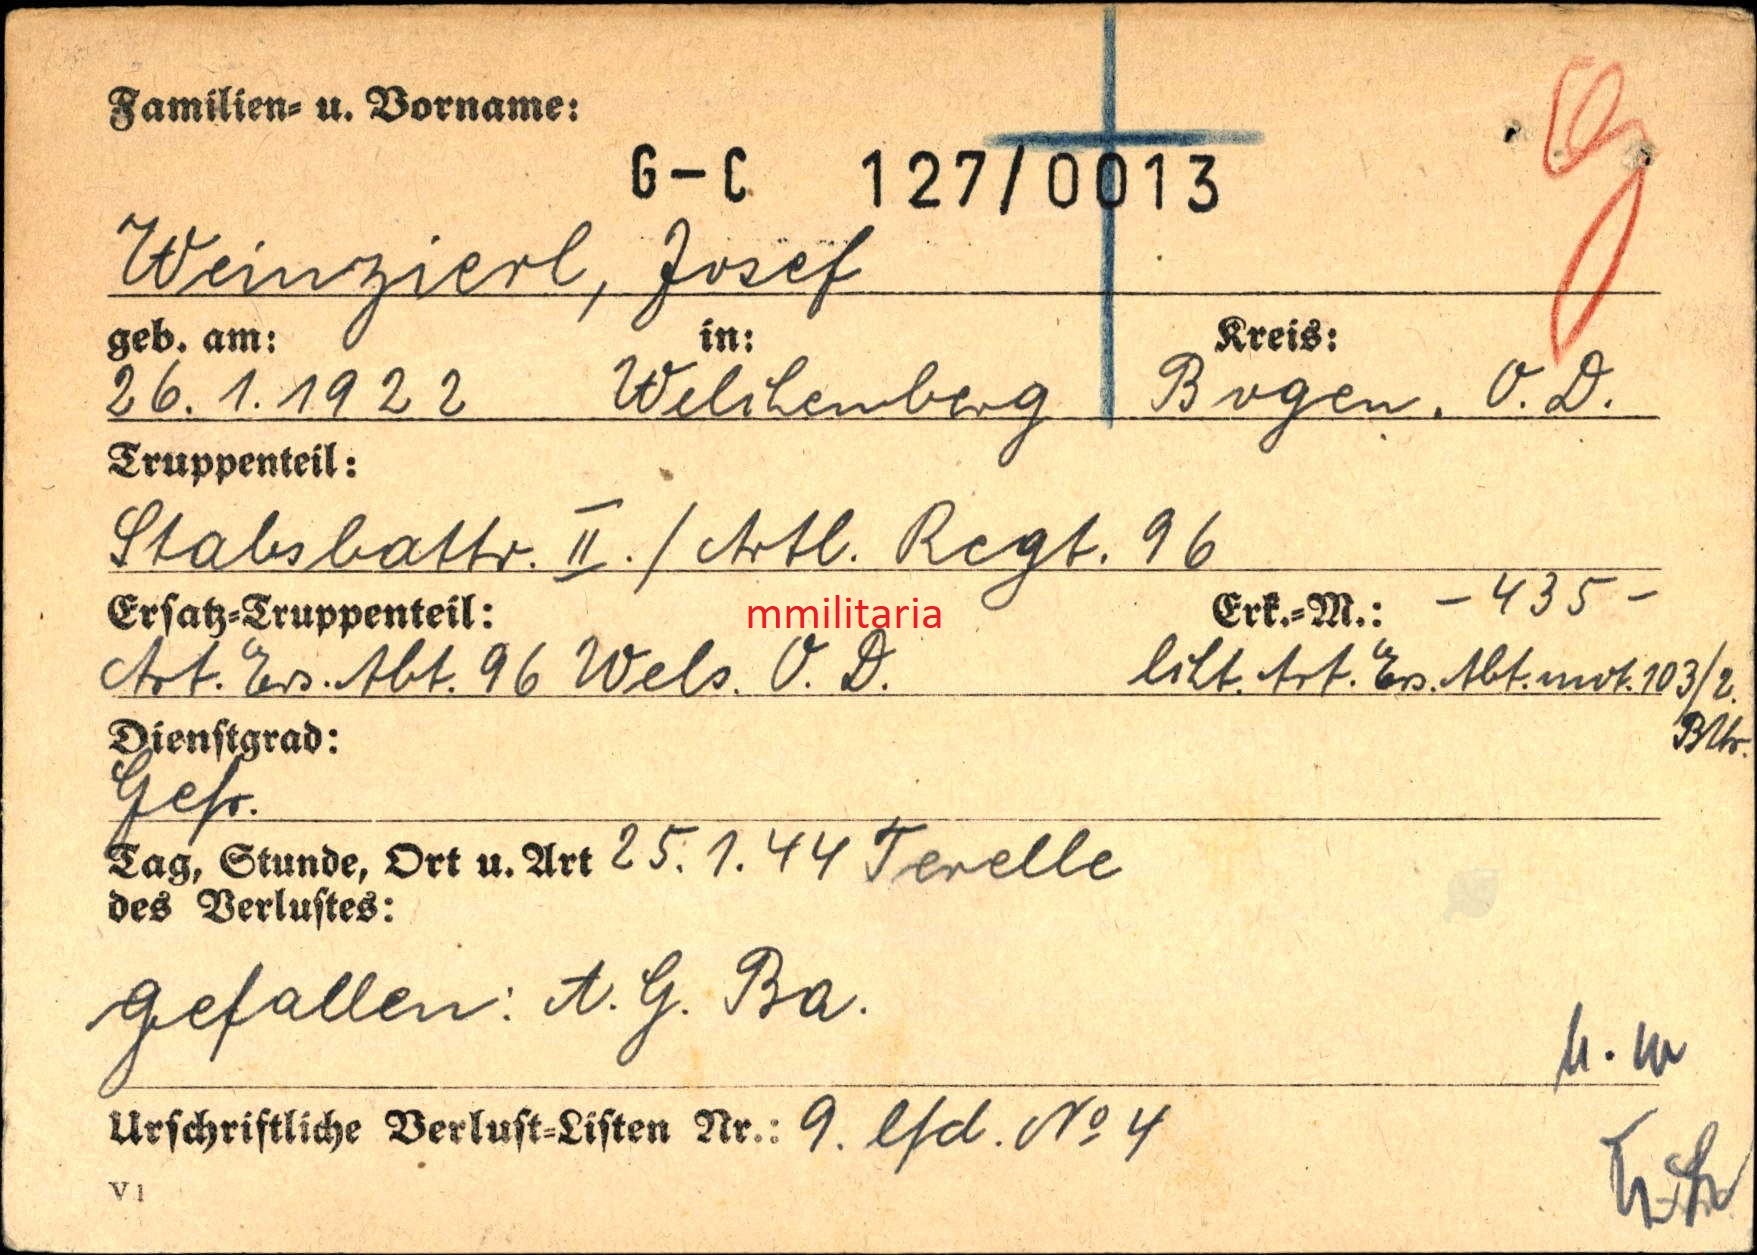 Familien- u. Vorname:
G-C 127/0013
Weinzierl, Josef
geb. am: in: Kreis:
26.1.1922 Welchenberg Bogen. O.D.
Truppenteil:
Stabsbattr. II./Artl. Regt. 96
Ersatz-Truppenteil: mmilitaria Erk.-M.: -435-
Art. Ers. Abt. 96 Wels. O.D. licht. Art. Ers. Abt. mot. 103/2.
Bttr.
Dienstgrad:
Gefr.
Tag, Stunde, Ort u. Art 25.1.44 Terelle
des Verlustes:
gefallen: A.G. Ba.
Urschriftliche Verlust-Listen Nr.: 9. lfd. No 4
V 1